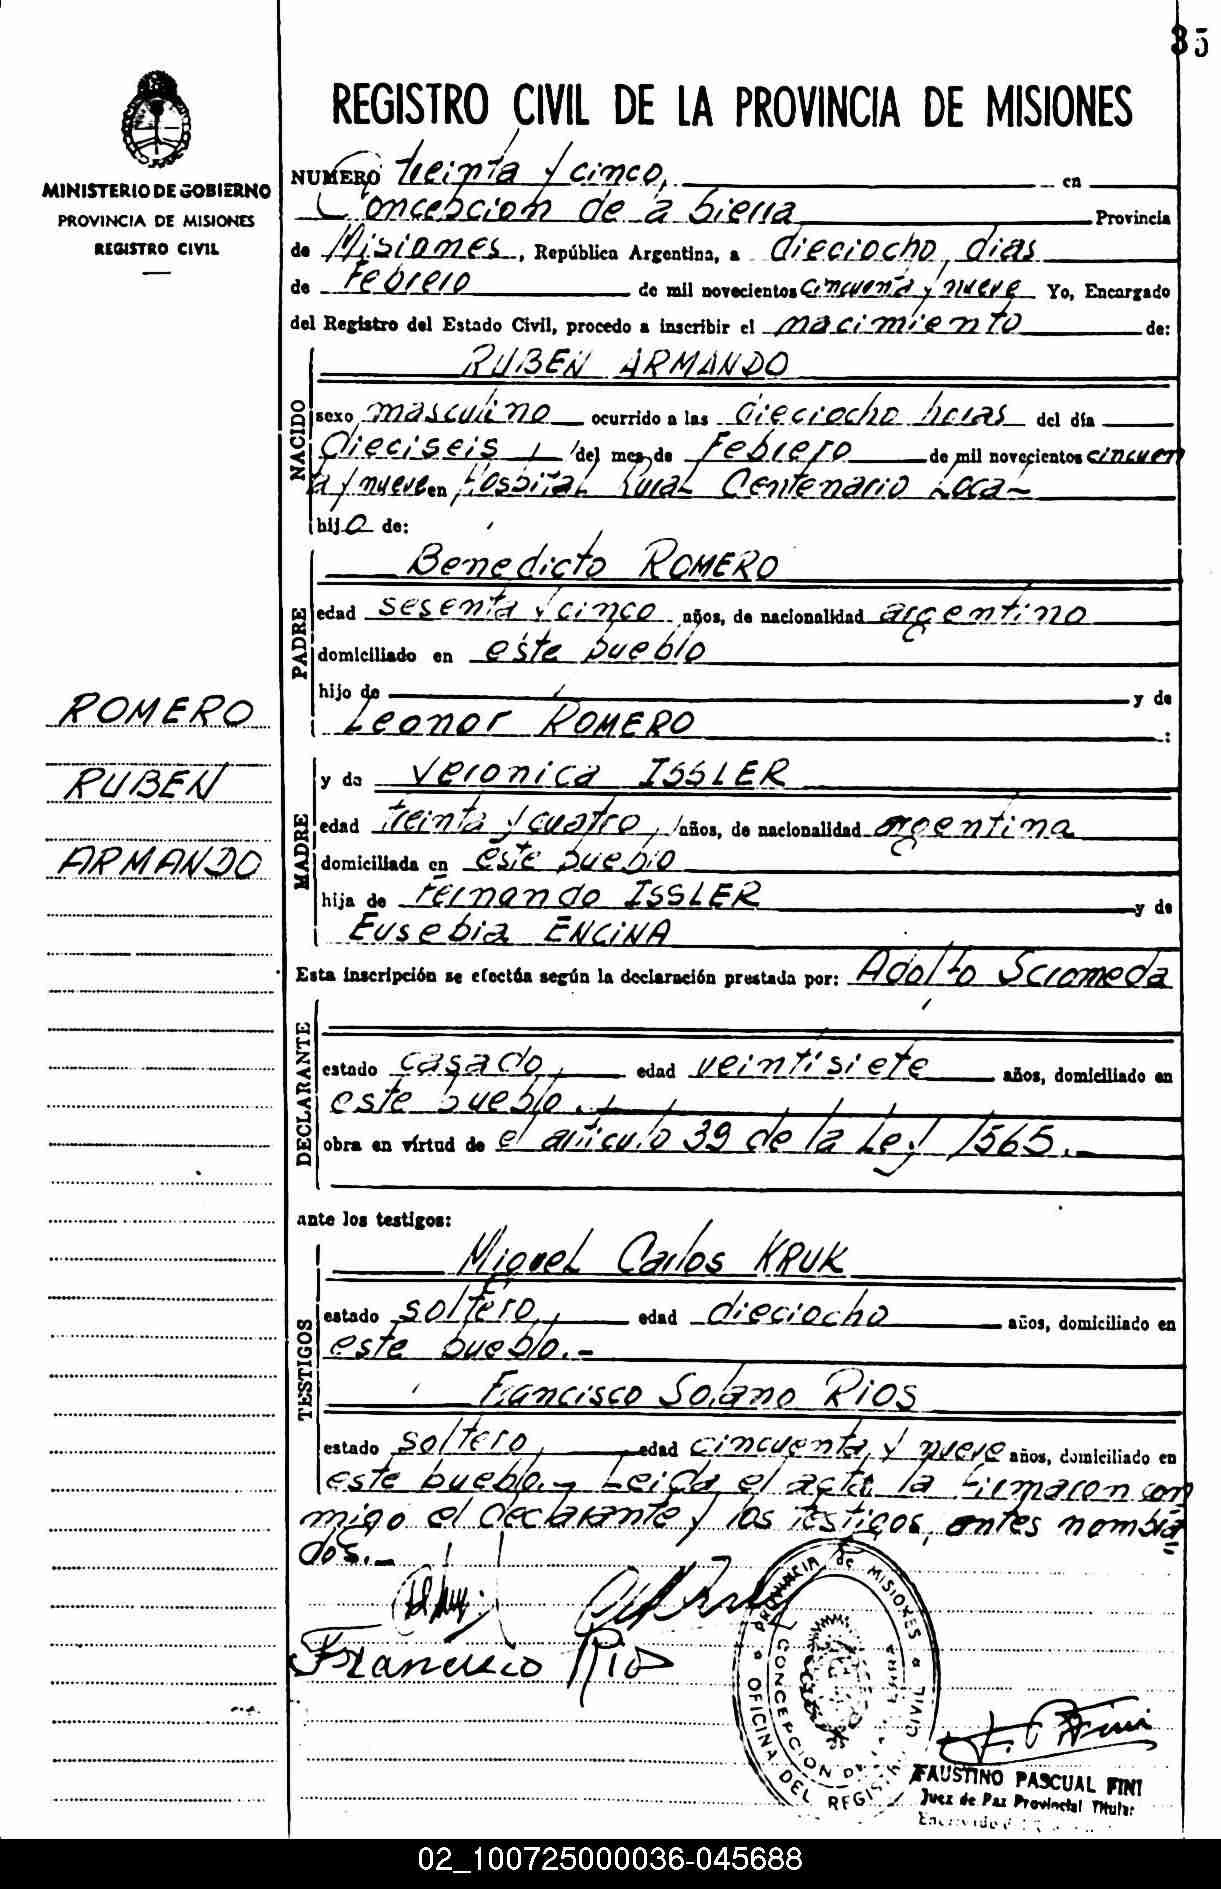 35
REGISTRO CIVIL DE LA PROVINCIA DE MISIONES
MINISTERIO DE GOBIERNO
PROVINCIA DE MISIONES
REGISTRO CIVIL
NUMERO treinta y cinco, en
Concepcion de la Sierra Provincia
de Misiones, República Argentina, a dieciocho dias
de Febrero de mil novecientos cincuenta y nueve Yo, Encargado
del Registro del Estado Civil, procedo a inscribir el nacimiento de:
NACIDO
RUBEN ARMANDO
sexo masculino ocurrido a las dieciocho horas del día
dieciseis del mes de Febrero de mil novecientos cincuen
ta y nueve en Hospital Rural Centenario Local
hijo de:
PADRE
Benedicto ROMERO
edad sesenta y cinco años, de nacionalidad argentino
domiciliado en este pueblo
hijo de y de
Leonor ROMERO :
ROMERO
RUBEN
ARMANDO
MADRE
y de Veronica ISSLER
edad treinta y cuatro, años, de nacionalidad argentina
domiciliada en este pueblo
hija de Fernando ISSLER y de
Eusebia ENCINA
Esta inscripción se efectúa según la declaración prestada por: Adolfo Scromeda
DECLARANTE
estado casado, edad veintisiete años, domiciliado en
este pueblo.
obra en virtud de el articulo 39 de la Ley 1565.-
ante los testigos:
TESTIGOS
Miguel Carlos KRUK
estado soltero, edad dieciocho años, domiciliado en
este pueblo.-
Francisco Solano RIOS
estado soltero, edad cincuenta y nueve años, domiciliado en
este pueblo.- Leida el acta la firmaron con
migo el declarante y los testigos, antes nombra
dos.-
Francisco Rios
PROVINCIA de MISIONES
OFICINA DEL REGISTRO CIVIL
CONCEPCION DE LA SIERRA
F. P. Fini
FAUSTINO PASCUAL FINI
Juez de Paz Provincial Titular
02_100725000036-045688